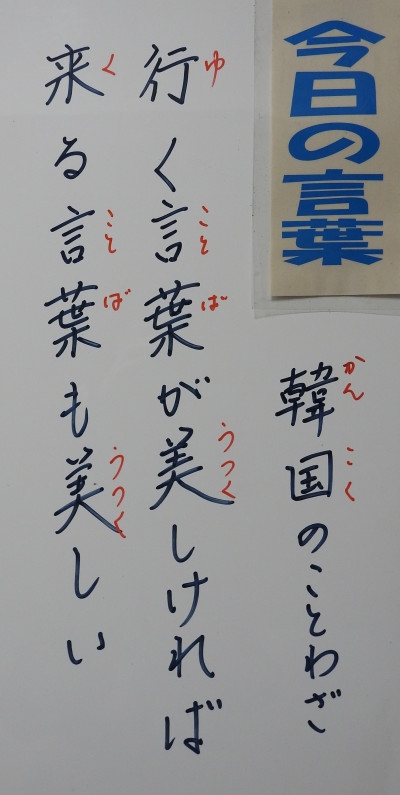 今日の言葉
韓国のことわざ
かんこく
行く言葉が美しければ
ゆことばうつく
来る言葉も美しい
くことばうつく